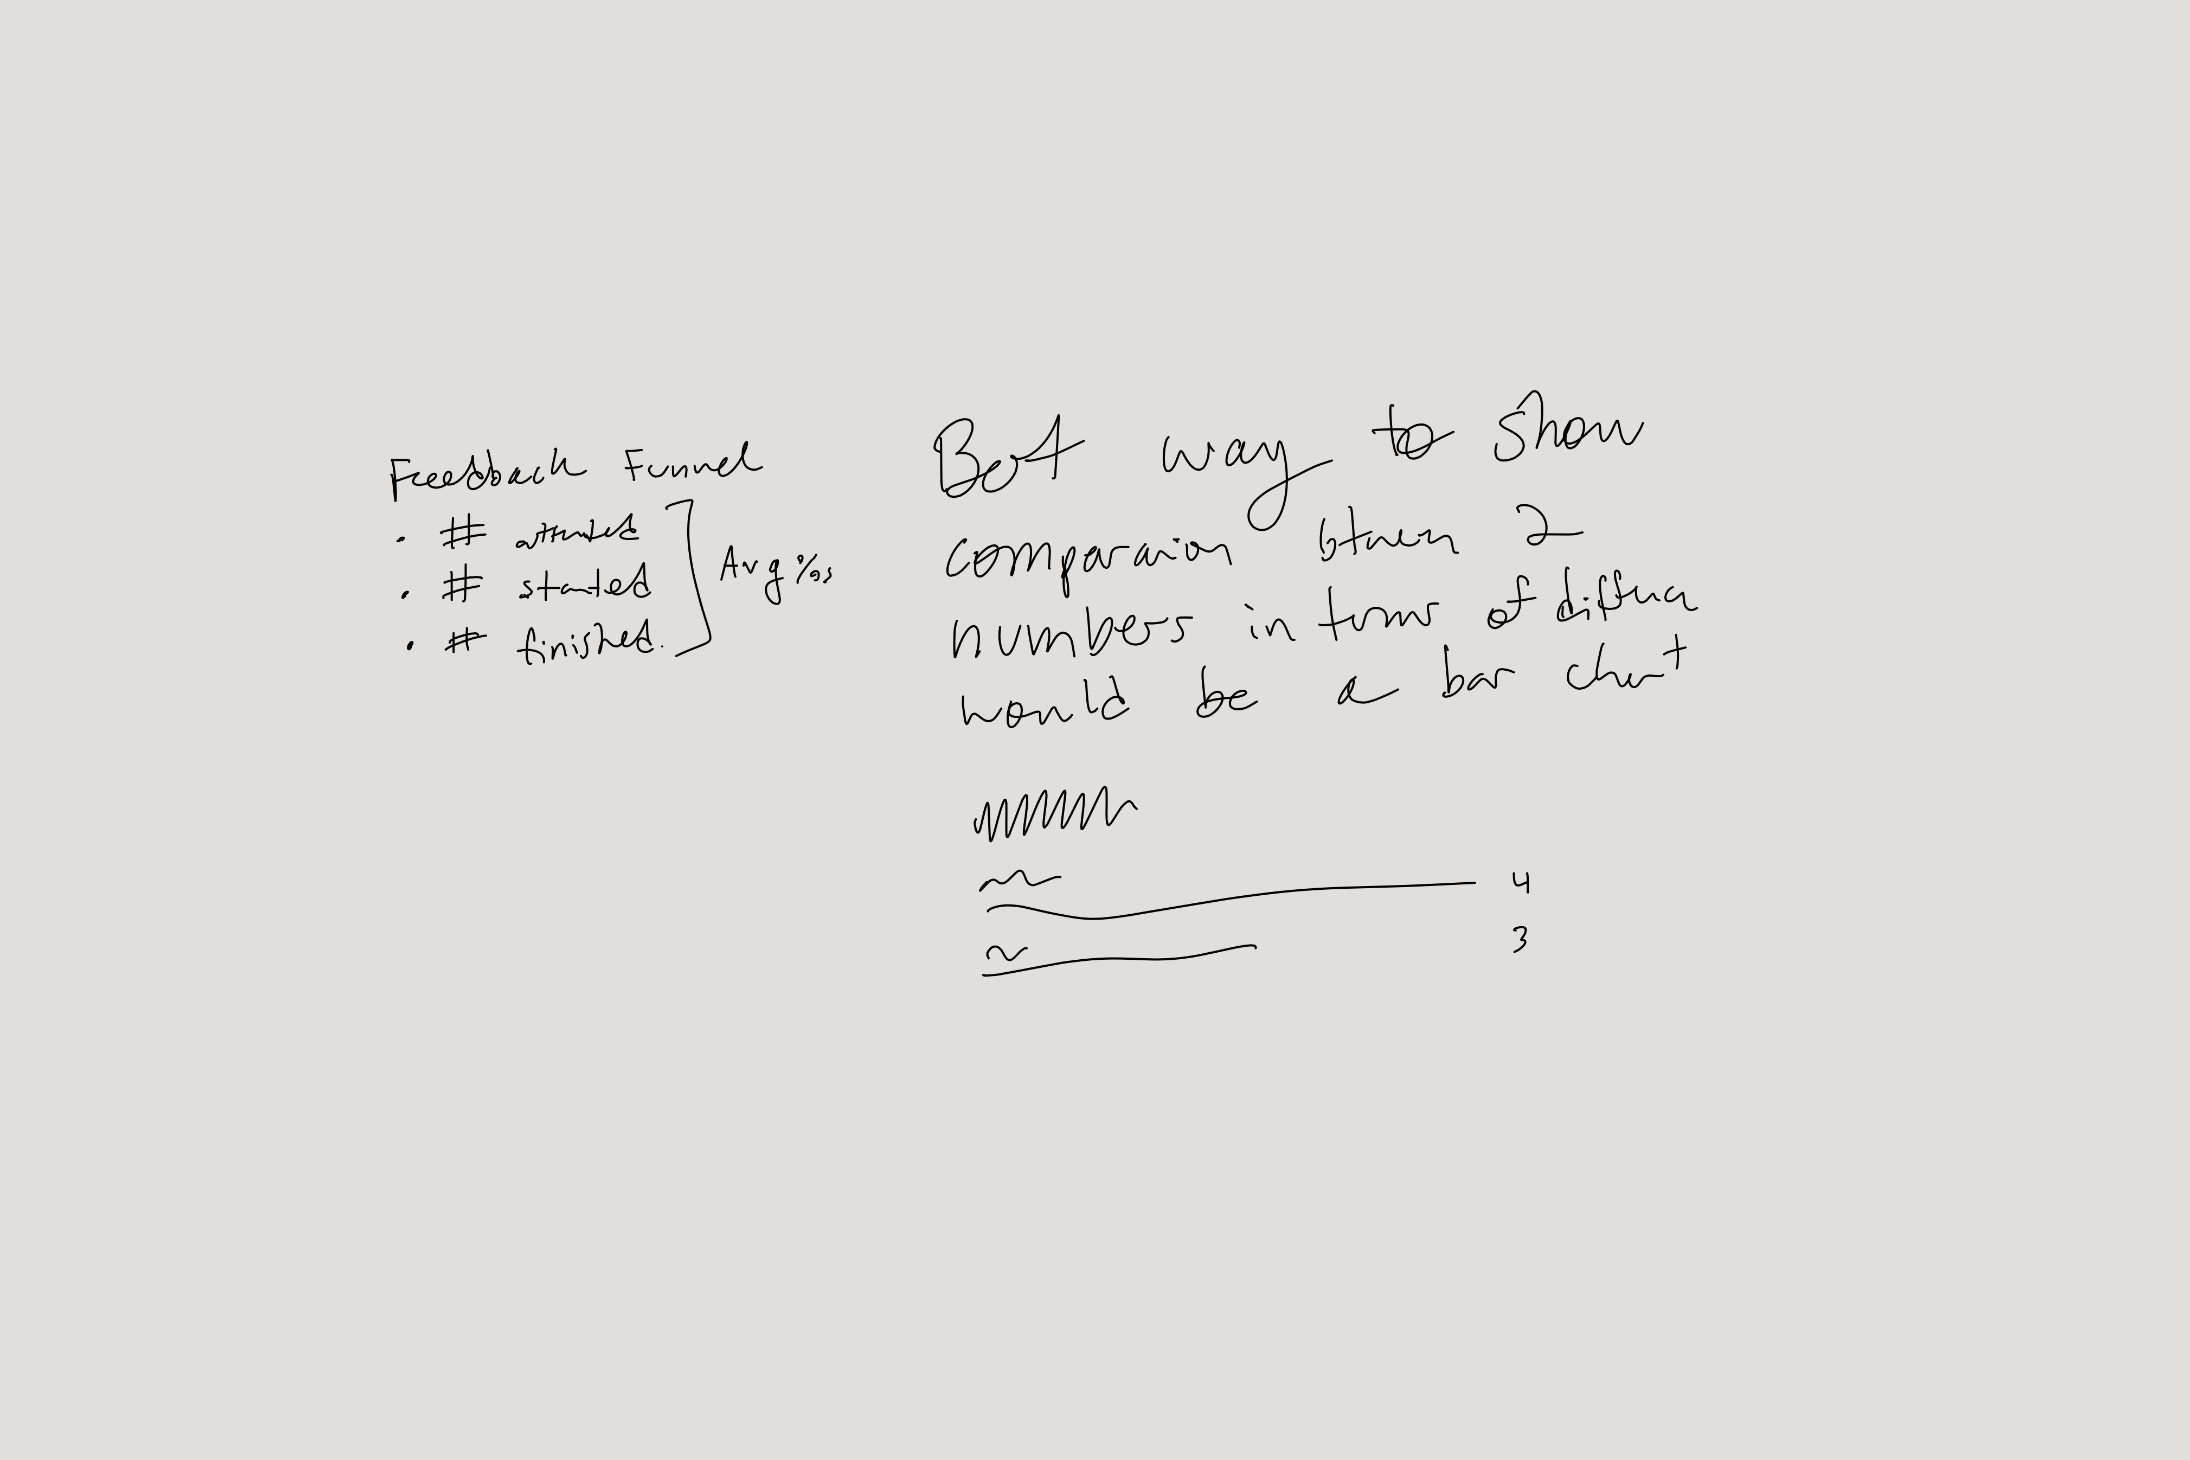 Feedback Funnel
• # attended
• # started
• # finished.
Avg %s
Best way to show
comparaion btween 2
numbers in terms of differnce
would be a bar chart
4
3